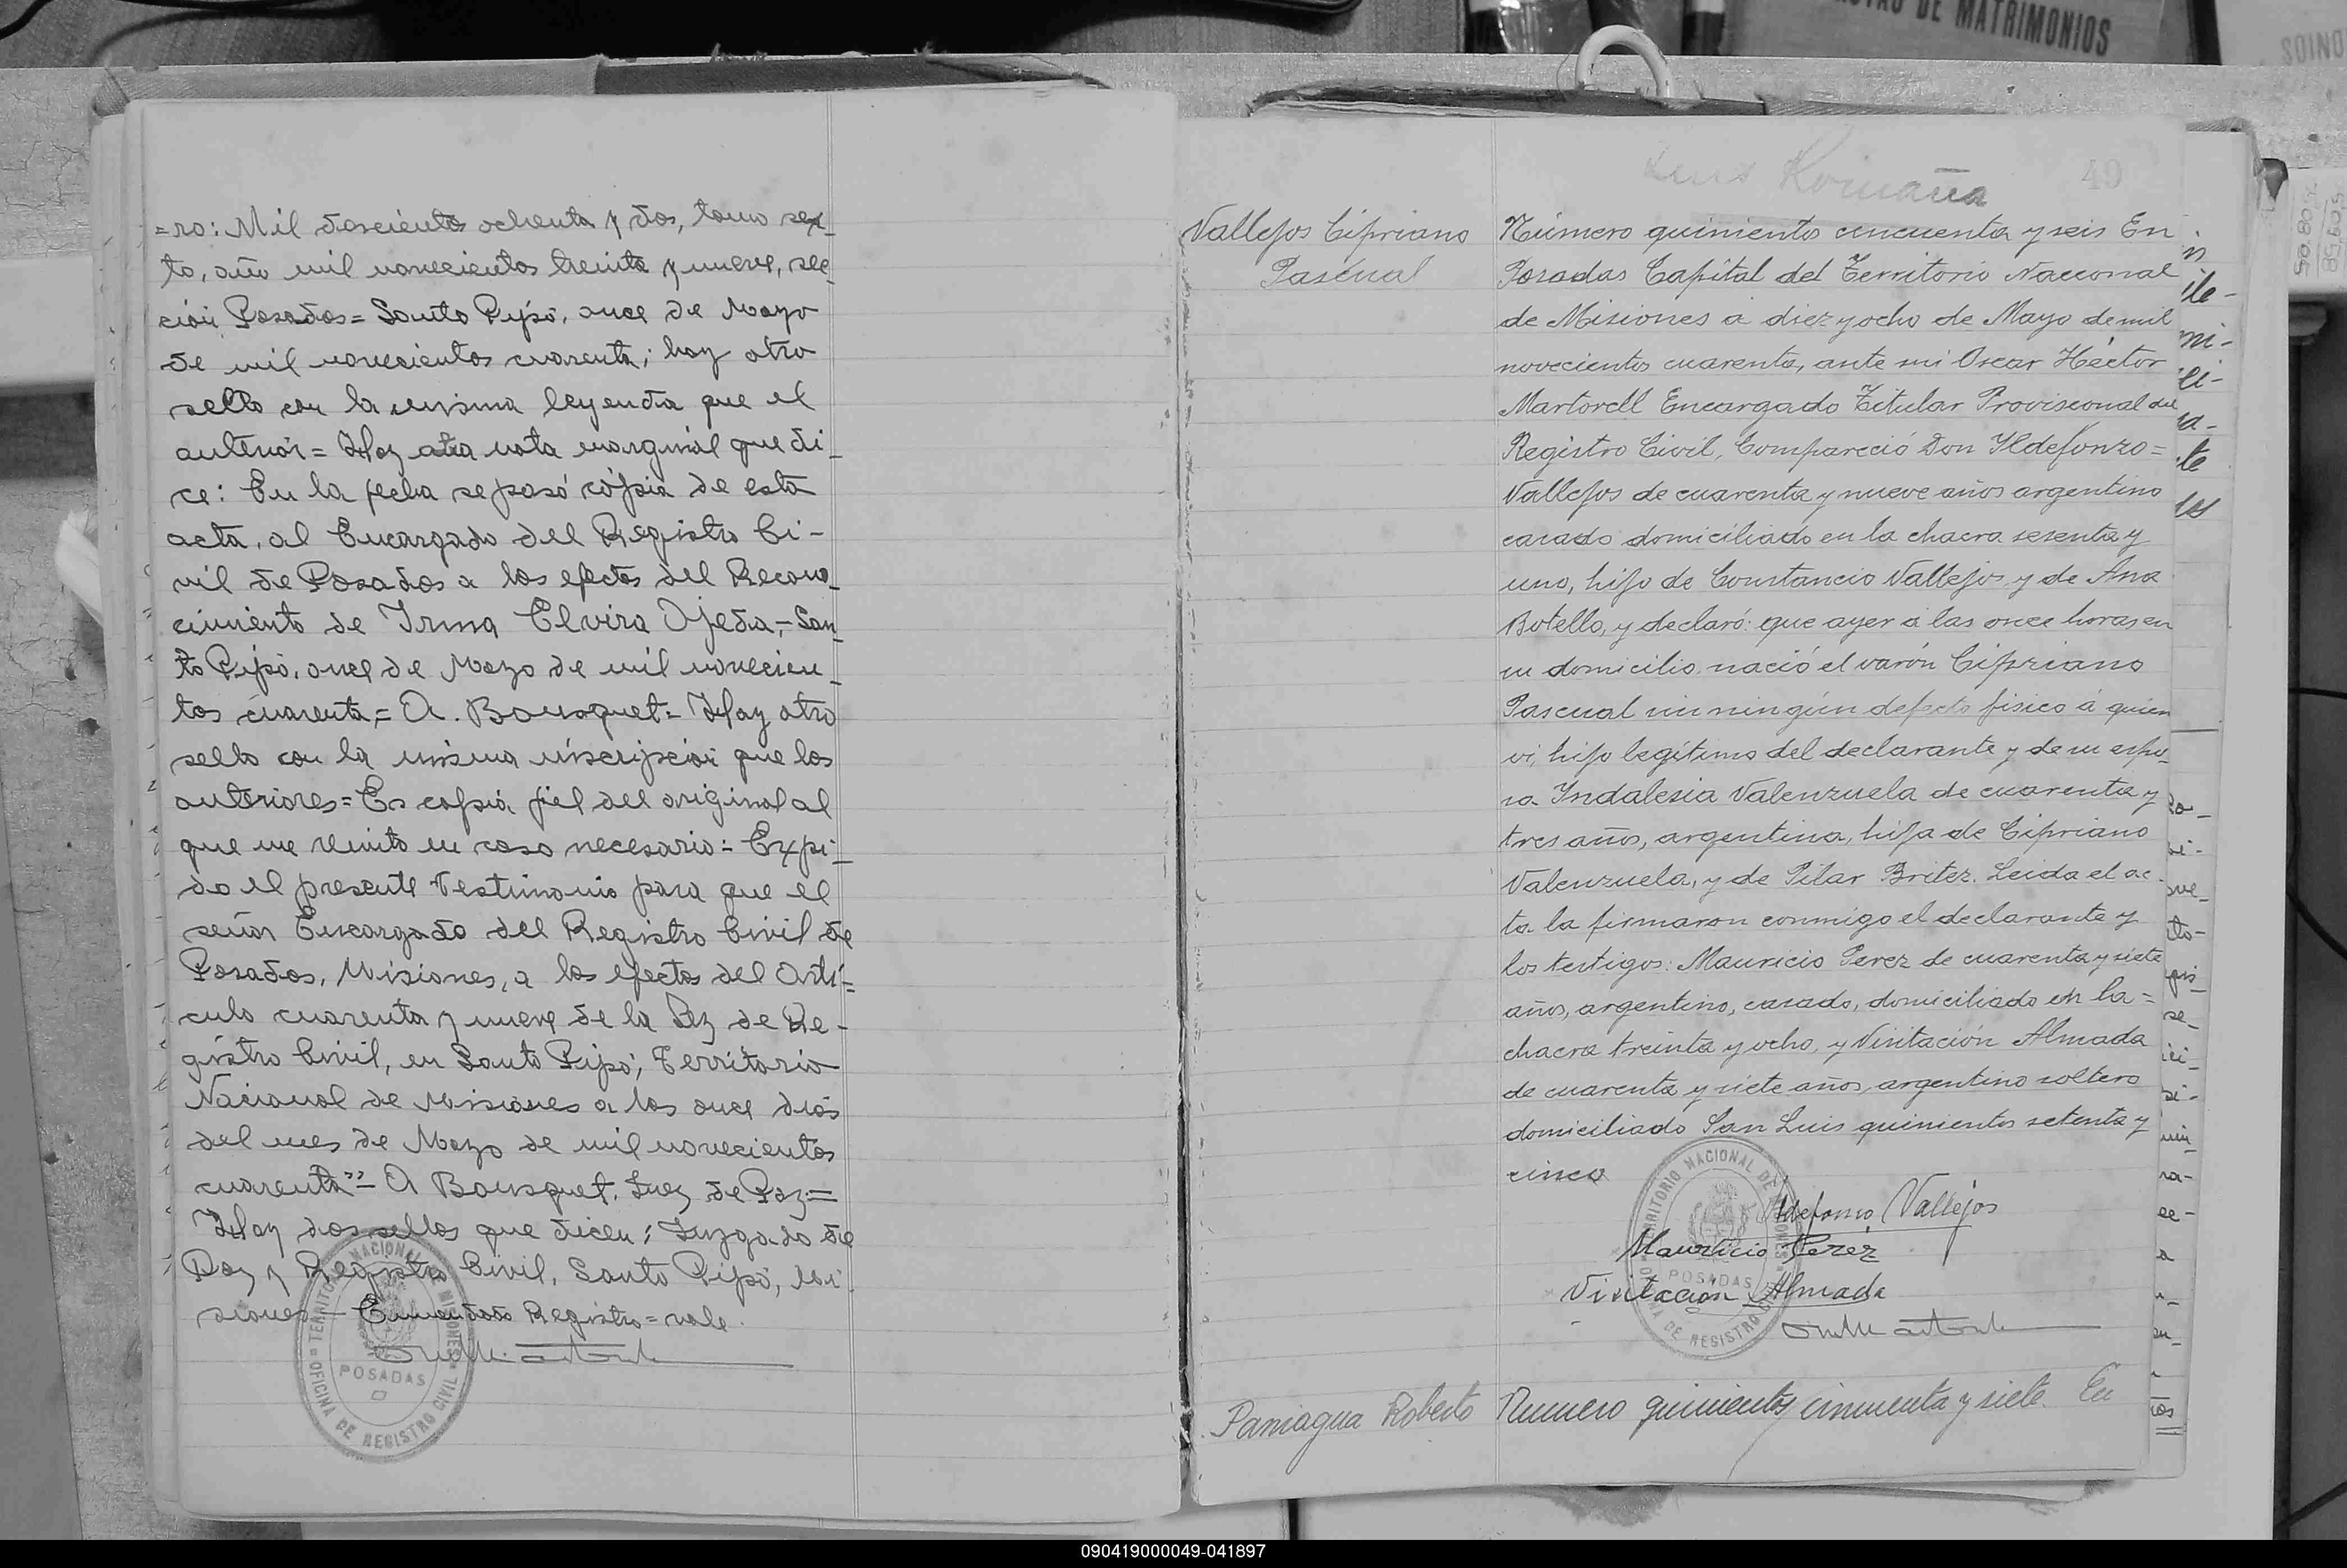 DE MATRIMONIOS
=ro: Mil doscientos ochenta y dos, tomo sex_
to, año mil novecientos treinta y nueve, sec
ción Posadas = Santo Pipó, once de Mayo
de mil novecientos cuarenta; hay otro
sello con la misma leyenda que el
anterior = Hay otra nota marginal que di_
ce: En la fecha se pasó cópia de esta
acta, al Encargado del Registro Ci-
vil de Posadas a los efectos del Recono_
cimiento de Irma Elvira Ojeda,- San_
to Pipó, once de Mayo de mil novecien_
tos cuarenta,= A. Bousquet = Hay otro
sello con la misma inscripción que los
anteriores = Es cópia fiel del original al
que me remito en caso necesario = Expi_
do el presente Testimonio para que el
señor Encargado del Registro Civil de
Posadas, Misiones, a los efectos del Artí=
culo cuarenta y nueve de la Ley de Re-
gistro Civil, en Santo Pipó; Territorio
Nacional de Misiones a los once dias
del mes de Mayo de mil novecientos
cuarenta"= A Bousquet. Juez de Paz =
Hay dos sellos que dicen: Juzgado de
Paz y Registro Civil, Santo Pipó, Mi
siones - Enmendado Registro = vale.
TERRITORIO NACIONAL DE MISIONES
POSADAS
OFICINA DE REGISTRO CIVIL
Luis Romaña
49
Vallejos Cipriano
Pascual
Número quinientos cincuenta y seis En
Posadas Capital del Territorio Nacional
de Misiones a diez y ocho de Mayo de mil
novecientos cuarenta, ante mi Oscar Héctor
Martorell Encargado Titular Provisional del
Registro Civil, Compareció Don Yldefonzo =
Vallejos de cuarenta y nueve años argentino
casado domiciliado en la chacra sesenta y
uno, hijo de Constancio Vallejos y de Ana
Botello, y declaró: que ayer a las once horas en
su domicilio nació el varón Cipriano
Pascual sin ningún defecto fisico á quien
vi, hijo legítimo del declarante y de su espo_
sa Yndalesia Valenzuela de cuarenta y
tres años, argentina, hija de Cipriano
Valenzuela, y de Pilar Britez. Leida el ac_
ta la firmaron conmigo el declarante y
los testigos: Mauricio Perez de cuarenta y siete
años, argentino, casado, domiciliado en la =
chacra treinta y ocho, y Visitación Almada
de cuarenta y siete años, argentino soltero
domiciliado San Luis quinientos setenta y
cinco
Ildefonso Vallejos
Mauricio Perez
Visitacion Almada
TERRITORIO NACIONAL DE MISIONES
POSADAS
OFICINA DE REGISTRO CIVIL
Paniagua Roberto
Numero quinientos cincuenta y siete. En
090419000049-041897